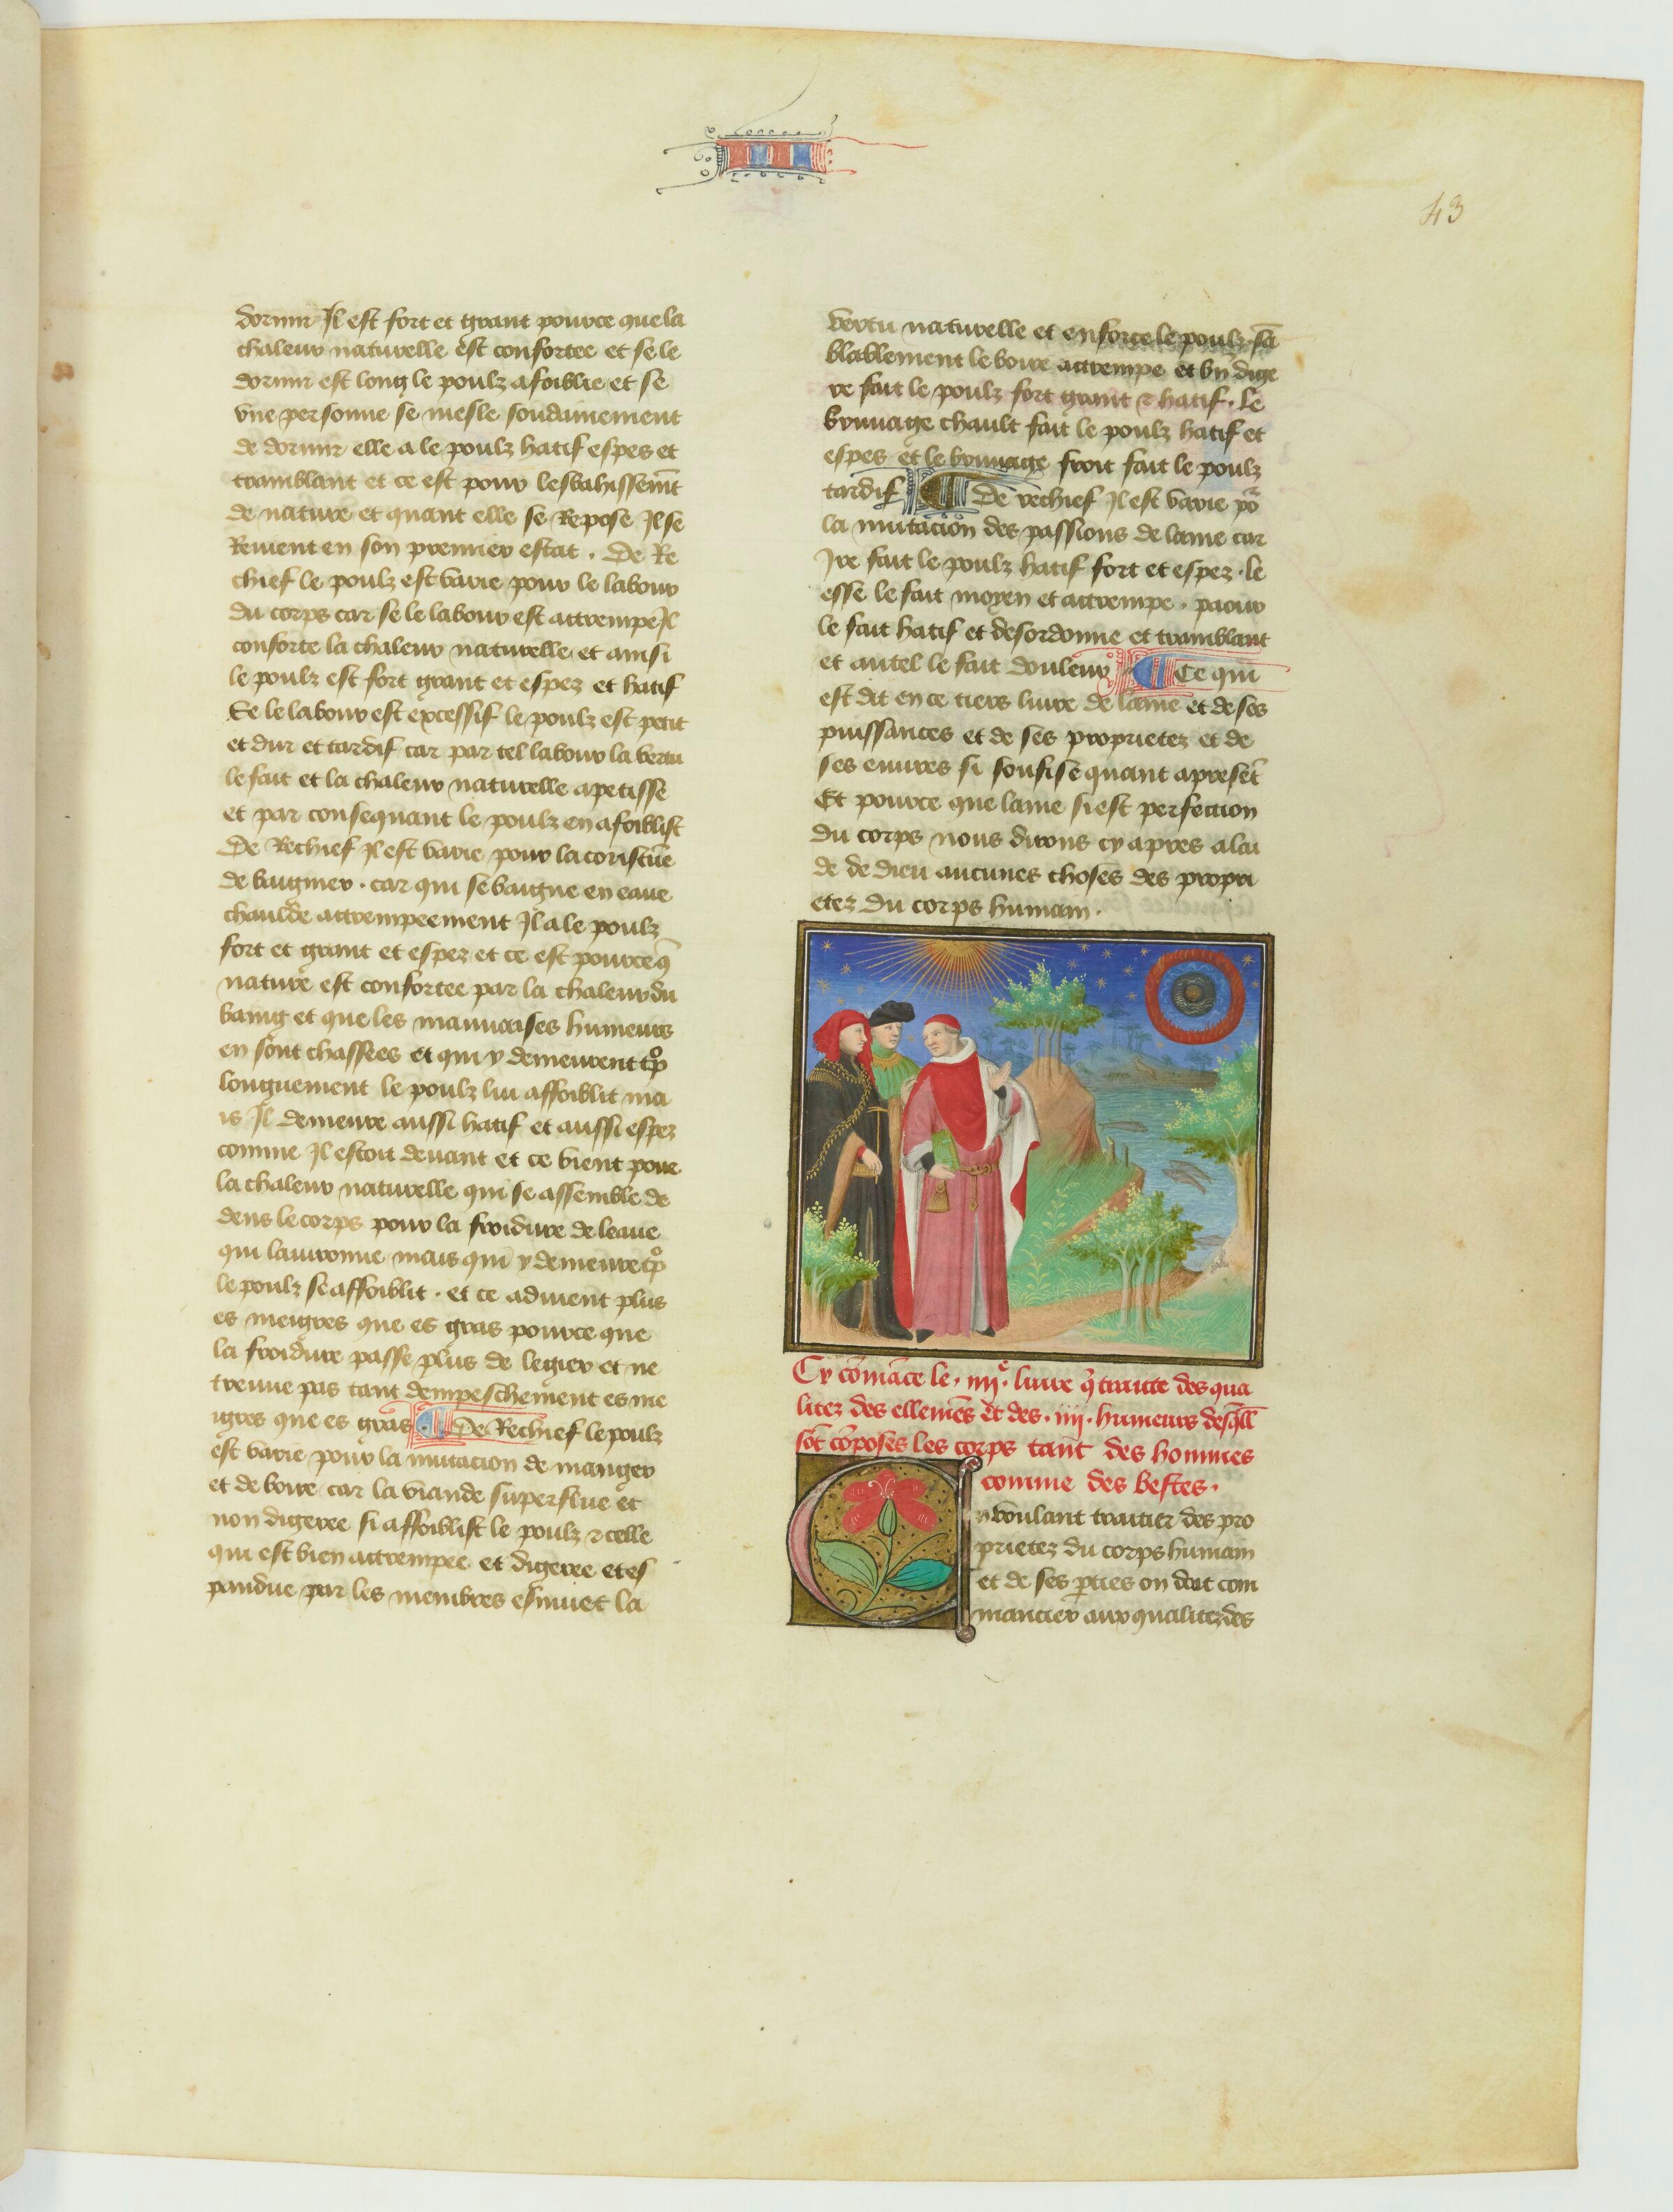 43
dormir Il est fort et grant pource que la
chaleur naturelle est confortee et se le
dormir est long le poulz afoiblie et se
vne personne se mesle soudainement
de dormir elle a le poulz hatif espes et
tramblant et ce est pour lesbahissem̃t
de nature et quant elle se Repose Il se
Reuient en son premier estat . De Re
chief le poulz est varie pour le labour
du corps car se le labour est attrempe Il
conforte la chaleur naturelle et ainsi
le poulz est fort grant et espez et hatif
Se le labour est excessif le poulz est petit
et dur et tardif car par tel labour la vertu
le fait et la chaleur naturelle apetisse
et par consequant le poulz en afoiblist
De Rechief Il est varie pour la coustũe
de baigner . car qui se baigne en eaue
chaulde attrempeement Il a le poulz
fort et grant et espez et ce est pource q̃
nature est confortee par la chaleur du
baing et que les mauuaises humeurs
en sont chassees et qui y demeurent tͦp
longuement le poulz lui affoiblit ma
is Il demeure aussi hatif et aussi espez
comme Il estoit deuant et ce vient pour
la chaleur naturelle qui se assemble de
dens le corps pour la froidure de leaue
qui lauironne mais qui y demeure tͦp
le poulz se affoiblit . et ce aduient plus
es meigres que es gras pource que
la froidure passe plus de legier et ne
treuue pas tant dempeschement es me
igres que es gras De Rechief le poulz
est varie pour la mutacion de manger
et de boire car la viande superflue et
non digeree si affoiblist le poulz ⁊ celle
qui est bien attrempee et digeree et es
pandue par les membres esmuet la
vertu naturelle et enforce le poulz . sã
blablement le boire attrempe et bñ dige
re fait le poulz fort grant ⁊ hatif . Le
bruuage chault fait le poulz hatif et
espes et le bruuage froit fait le poulz
tardif De rechief Il est varie po᷑
la mutacion des passions de lame car
Ire fait le poulz hatif fort et espez . le
esse le fait moyen et attrempe . paour
le fait hatif et desordonne et tramblant
et autel le fait douleur Ce qui
est dit en ce tiers liure de lame et de ses
puissances et de ses proprietez et de
ses euures si soufise quant apresẽt
Et pource que lame si est perfection
du corps nous dirons cy apres a lai
de de dieu aucunes choses des propri
etez du corps humain .
Cy cõmãce le . iiii.ᵉ liure q̃ traitte des qua
litez des ellemẽs et des . iiii . humeurs desq̃ll̃
sõt cõposes les corps tant des hommes
comme des bestes .
En voulant traitier des pro
prietez du corps humain
et de ses ꝑties on doit com
mancier aux qualitez des